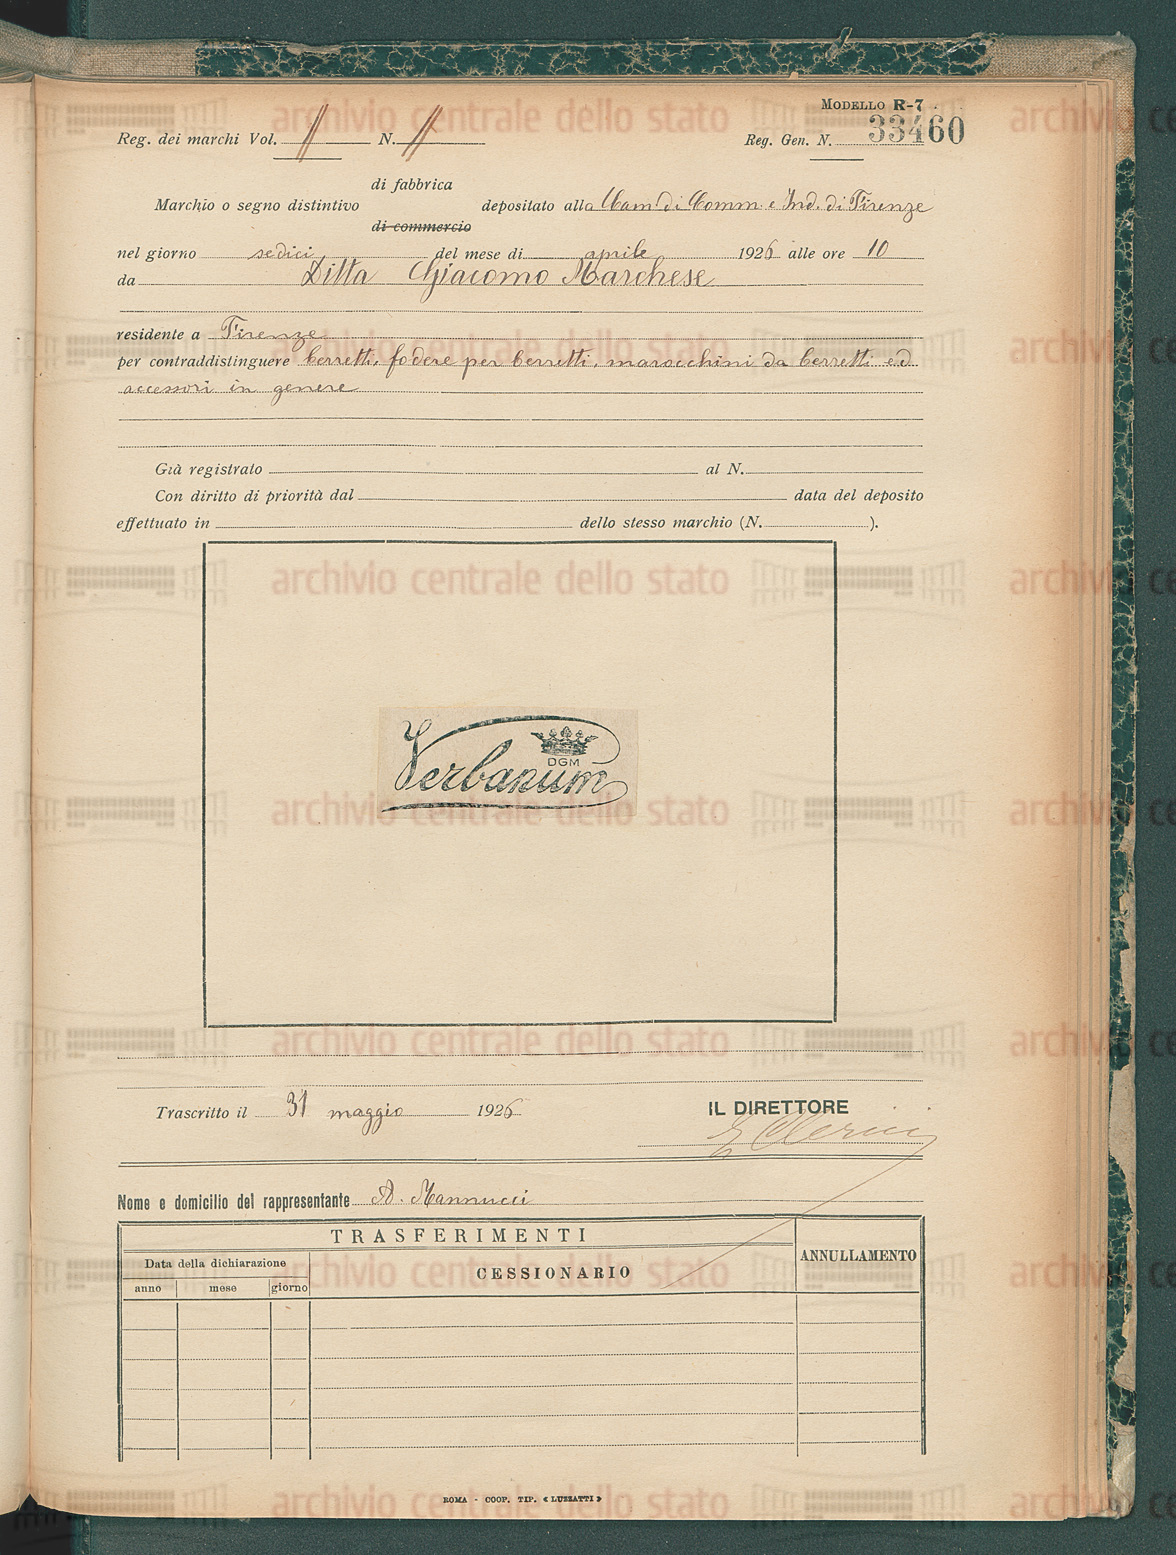 MODELLO R-7
Reg. dei marchi Vol. // N. // Reg. Gen. N. 33460
di fabbrica
Marchio o segno distintivo depositato alla Cam. di Comm. e Ind. di Firenze
di commercio
nel giorno sedici del mese di aprile 1926 alle ore 10
da Ditta Giacomo Marchese
residente a Firenze
per contraddistinguere berretti, fodere per berretti, marocchini da berretti ed
accessori in genere
Già registrato al N.
Con diritto di priorità dal data del deposito
effettuato in dello stesso marchio (N. ).
DGM
Verbanum
Trascritto il 31 maggio 1926 IL DIRETTORE
Nome e domicilio del rappresentante A. Mannucci
TRASFERIMENTI
ANNULLAMENTO
Data della dichiarazione
CESSIONARIO
anno mese giorno
ROMA - COOP. TIP. « LUZZATTI »
archivio centrale dello stato
archivio centrale dello stato
archivio centrale dello stato
archivio centrale dello stato
archivio centrale dello stato
archivio centrale dello stato
archivio centrale dello stato